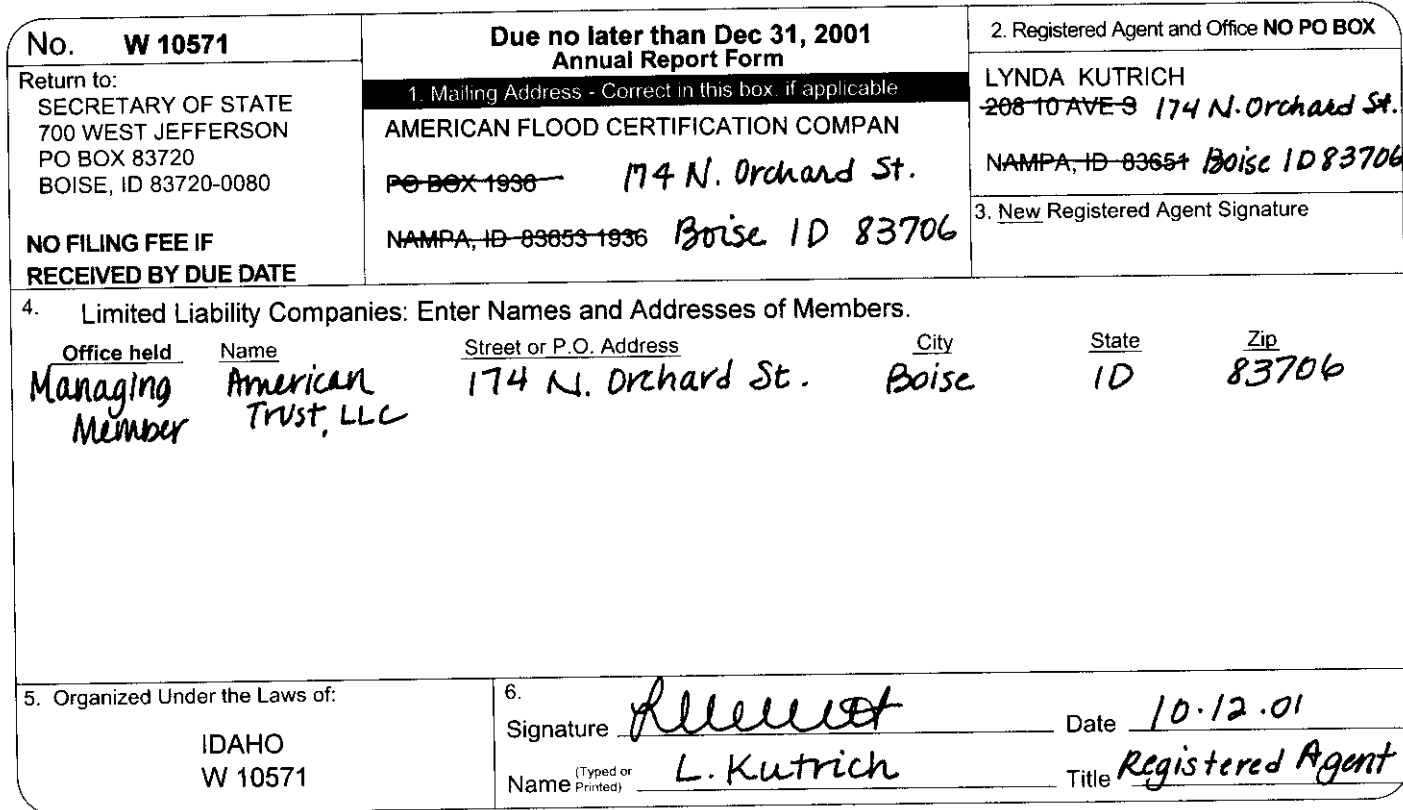 No. W 10571
Return to:
SECRETARY OF STATE
700 WEST JEFFERSON
PO BOX 83720
BOISE, ID 83720-0080
NO FILING FEE IF
RECEIVED BY DUE DATE
Due no later than Dec 31, 2001
Annual Report Form
1. Mailing Address - Correct in this box, if applicable
AMERICAN FLOOD CERTIFICATION COMPAN
PO BOX 1936 174 N. Orchard St.
NAMPA, ID 83653 1936 Boise ID 83706
2. Registered Agent and Office NO PO BOX
LYNDA KUTRICH
208 10 AVE S 174 N. Orchard St.
NAMPA, ID 83651 Boise ID 83706
3. New Registered Agent Signature
4. Limited Liability Companies: Enter Names and Addresses of Members.
Office held Name Street or P.O. Address City State Zip
Managing American 174 N. Orchard St. Boise ID 83706
Member Trust, LLC
5. Organized Under the Laws of:
IDAHO
W 10571
6.
Signature Date 10.12.01
Name (Typed or Printed) L. Kutrich Title Registered Agent